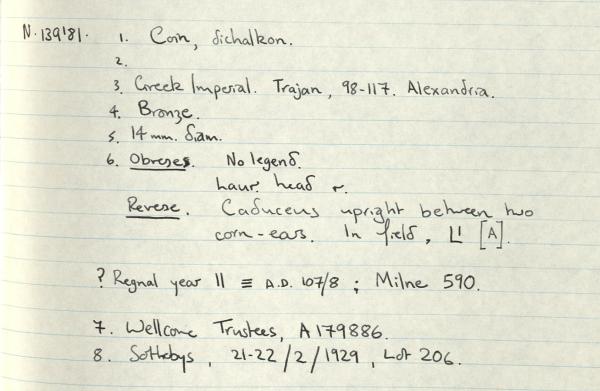 N.139'81. 1. Coin, dichalkon.
2.
3. Greek Imperial. Trajan, 98-117. Alexandria.
4. Bronze.
5. 14 mm. diam.
6. Obverses. No legend.
laur. head r.
Reverse. Caduceus upright between two
corn-ears. In field, L I [A].
? Regnal year 11 ≡ A.D. 107/8 ; Milne 590.
7. Wellcome Trustees, A179886.
8. Sothebys, 21-22/2/1929, Lot 206.